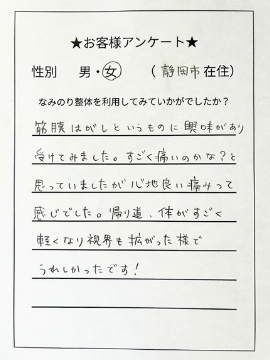 ★お客様アンケート★
性別　男・女　（静岡市在住）
なみのり整体を利用してみていかがでしたか？
筋膜はがしというものに興味があり
受けてみました。すごく痛いのかな？と
思っていましたが心地良い痛みって
感じでした。帰り道、体がすごく
軽くなり視界も拡がった様で
うれしかったです！